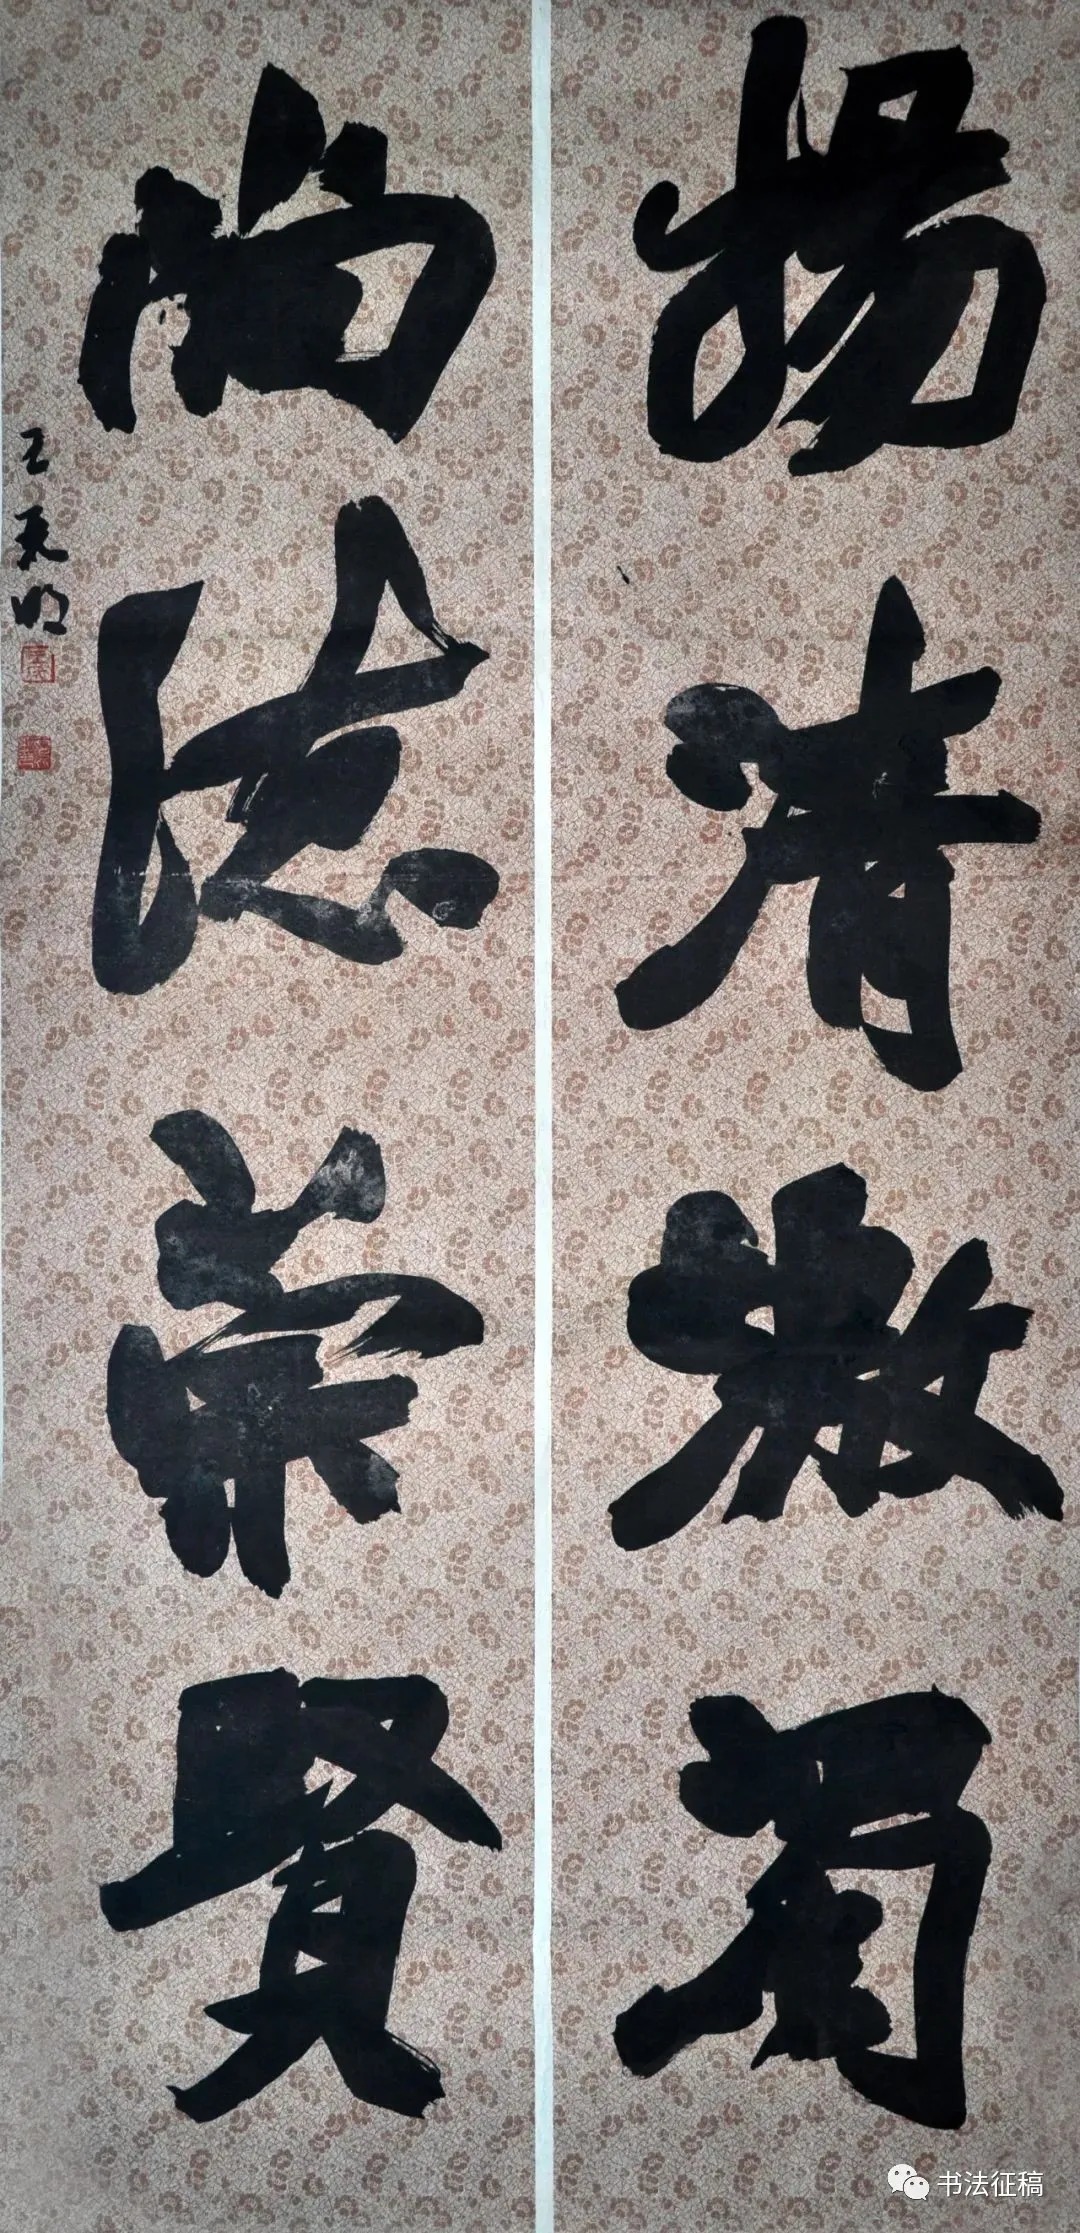 揚清激濁
尚德崇賢
书法征稿